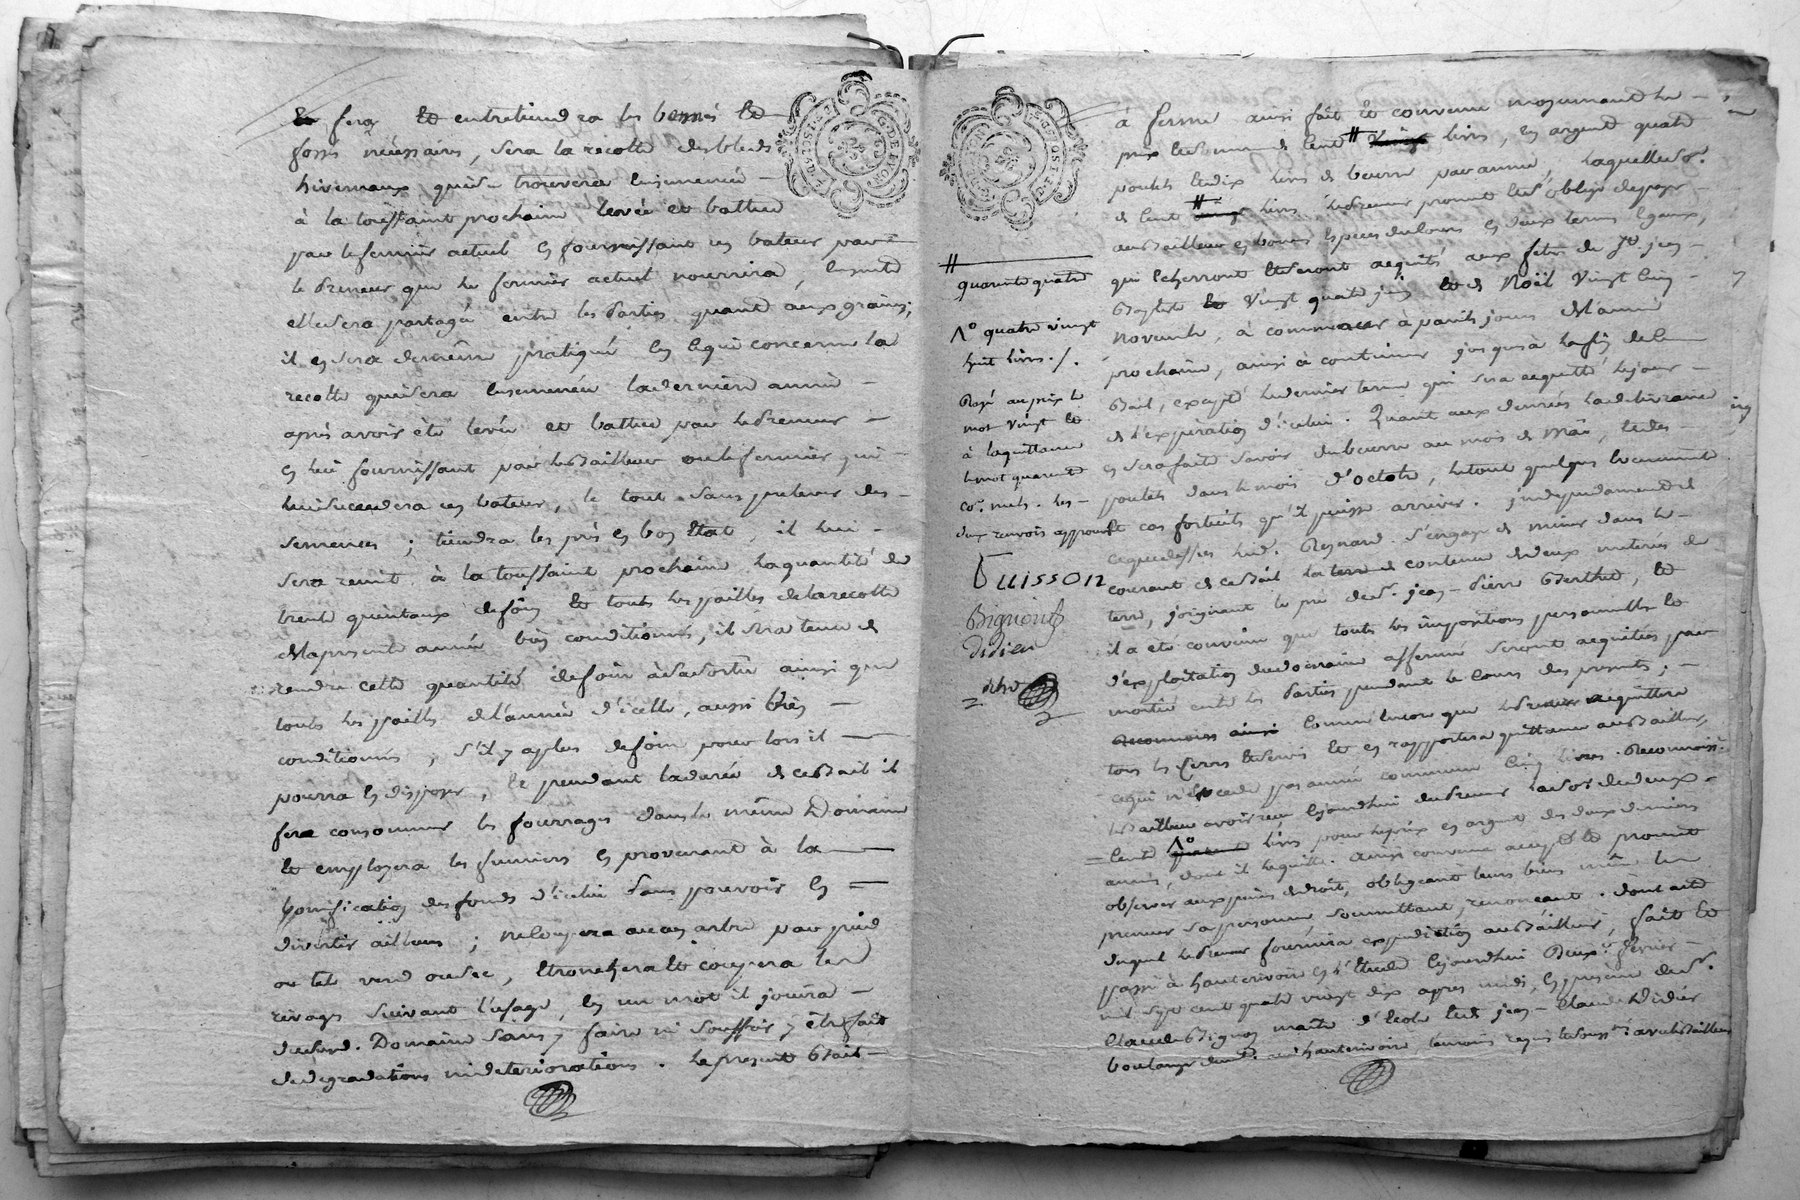 fera et entretiendra les berres et
fossés nécessaires, sera la recolte des bleds
hivernaux qui se trouvera ensemencée
à la toussaint prochaine levée et battue
par le fermier actuel en fournissant un bateur par
le preneur que le fermier actuel nourrira, ensuite
elle sera partagée entre les parties quant aux grains;
il en sera de même pratiqué en ce qui concerne la
recolte qui sera ensemencée la derniere année
après avoir été levée et battue par le preneur
en lui fournissant par le bailleur ou le fermier qui
lui succedera un bateur, le tout sans prelever des
semences; tiendra les prés en bon état il lui
sera remit à la toussaint prochaine la quantité de
trente quintaux de foin et touts les pailles de la recolte
de la presente année bien conditionnés, il sera tenu de
rendre cette quantité de foin à sa sortie ainsi que
touts les pailles de l'année d'icelle, aussi bien
conditionnés, s'il y a plus de foin pour lors il
pourra en disposer, et pendant la durée de ce bail il
fera consommer les fourrages dans le même Domaine
et employera les fumiers en provenant à la
bonification des fonds d'icelui sans pouvoir en
divertir ailleurs; ne coupera aucun arbre par pied
ou tete verd ou sec, etronchera et coupera les
rivages suivant l'usage, en un mot il jouira
dudit. Domaine sans y faire ni souffrir y être fait
de degradations ni deteriorations. le present Bail
à ferme ainsi fait et convenu moyennant le
prix et somme de cent # livres, en argent quatre
poulets et dix livres de beurre par année, laquelle so.e
de cent # livres le preneur promet et s'oblige de payer
au Bailleur en bonnes especes de cours en deux termes egaux,
qui echerront et seront acquités aux fetes de St. jean
Baptiste vingt quatre juin et de Noël vingt cinq
novembre, à commencer à pareils jours de l'année
prochaine, ainsi à continuer jusques à la fin de ce
Bail, excepté le dernier terme qui sera acquitté le jour
de l'expiration d'icelui. Quant aux denrées la delivrance
en sera faite savoir du beurre au mois de mai, et des
poulets dans le mois d'octobre, le tout quelques evenements
et cas fortuits qu'il puisse arriver. independamment de
ce que dessus led. Reynard s'engage de miner dans le
courant de ce Bail la terre de contenue de deux meterées de
terre, joignant le pré de sr. jean-Pierre Berthet, et
il a été convenu que touts les impositions personnelles et
d'exploitation du domaine affermé seront acquitées par
moitié entre les Parties pendant le cours des presents;
comme encore que le preneur acquittera
tous les cens et servis et en rapportera quittance au Bailleur,
ce qui n'excede pas année commune cinq livres. Reconnoiss.t
le Bailleur avoir reçu cejourdhui du preneur la so.e de deux
cents 1° livres pour le prix en argent des deux dernieres
années, dont il le quitte. ainsi convenu accepté et promit
observer aux peines de droit, obligeant leurs biens même le
preneur sa personne soumettant, renonceant. dont acte
duquel le preneur fournira expedition au Bailleur, fait et
passé à hauterivoire en l'etude cejourdhui deux.e fevrier
mil sept cent quatre vingt dix apres midi, en presence de sr.
Claude Bignon maitre d'ecole et de jean-Claude Didier
boulanger demt. audt hauterivoire, temoins requis et soussnés avec le Bailleur
#
quarante quatre
1° quatre vingt
huit livres ./.
Rayé au prix le
mot vingt et
à la quittance
le mot quarante
co.e nuls. les
deux renvois approuvés
Buisson
Bignon
Didier